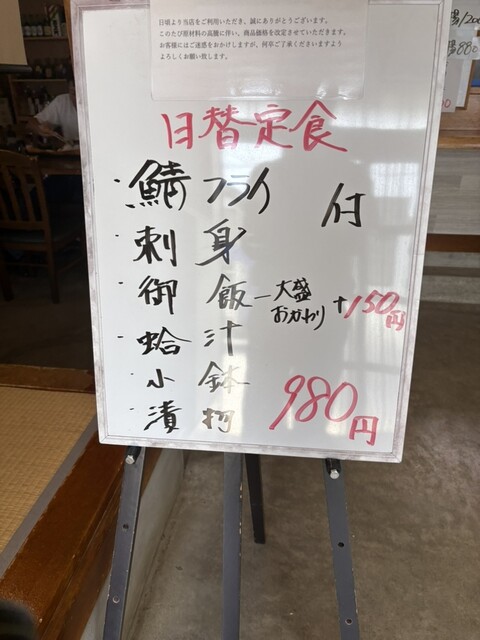 日頃より当店をご利用いただき、誠にありがとうございます。
このたび原材料の高騰に伴い、商品価格を改定させていただきます。
お客様にはご迷惑をおかけしますが、何卒ご了承くださいますよう
よろしくお願い致します。
日替定食
・鯖フライ 付
・刺身
・御飯 ー大盛 おかわり +150円
・蛤汁
・小鉢
・漬物
980円